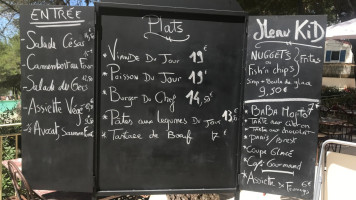 ENTRÉE
Salade César
Camembert au Four
Salade du Gers
Assiette Végé
½ Avocat Saumon
Plats
* Viande Du Jour 19€
* Poisson Du Jour 19€
* Burger Du Chef 14,50€
* Pâtes aux legumes Du Jour 15€
* Tartare de Boeuf 17€
Menu KiD
NUGGETS Frites
ou
Fish'n chips
Sirop - Boule de glace
9,50€
* BABA MOJITO 7€
* TARTE AUX CITRON
* TARTE AU CHOCOLAT
* Coupe Glacé
* Café Gourmand
* Assiette de Fromages